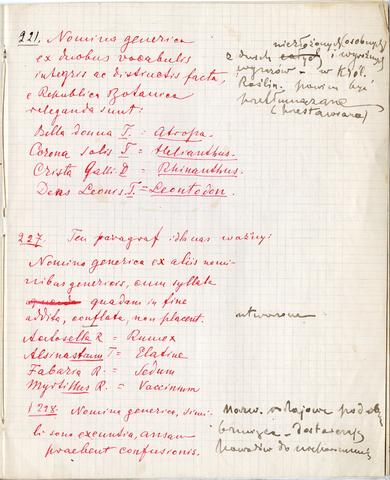 221. Nomina generica
ex duobus vocabulis
integris ac distinctis facta,
e Republica Botanica
releganda sunt:
niezłożonych osobnych
z dwóch i wyraźnych
wyrazów - w Król.
Roślin. powinny być
przetłumaczone
Bella donna T. = Atropa.
Corona solis T = Helianthus.
Crista Galli D = Rhinanthus.
Dens Leonis T = Leontodon.
227. Ten paragraf dla nas ważny:
Nomina generica ex aliis nomi-
nibus genericis, cum syllaba
quadam in fine
addita, conflata, non placent.
utworzone
Acetosella R = Rumex
Alsinastrum T = Elatine
Fabaria R. = Sedum
Myrtillus R. = Vaccinium
1228. Nomina generica, simi-
li sono exeuntia, ansam
praebent confusionis.
Nazw. rodzajowe podob.
brzmiące - dostarczają
powodów do